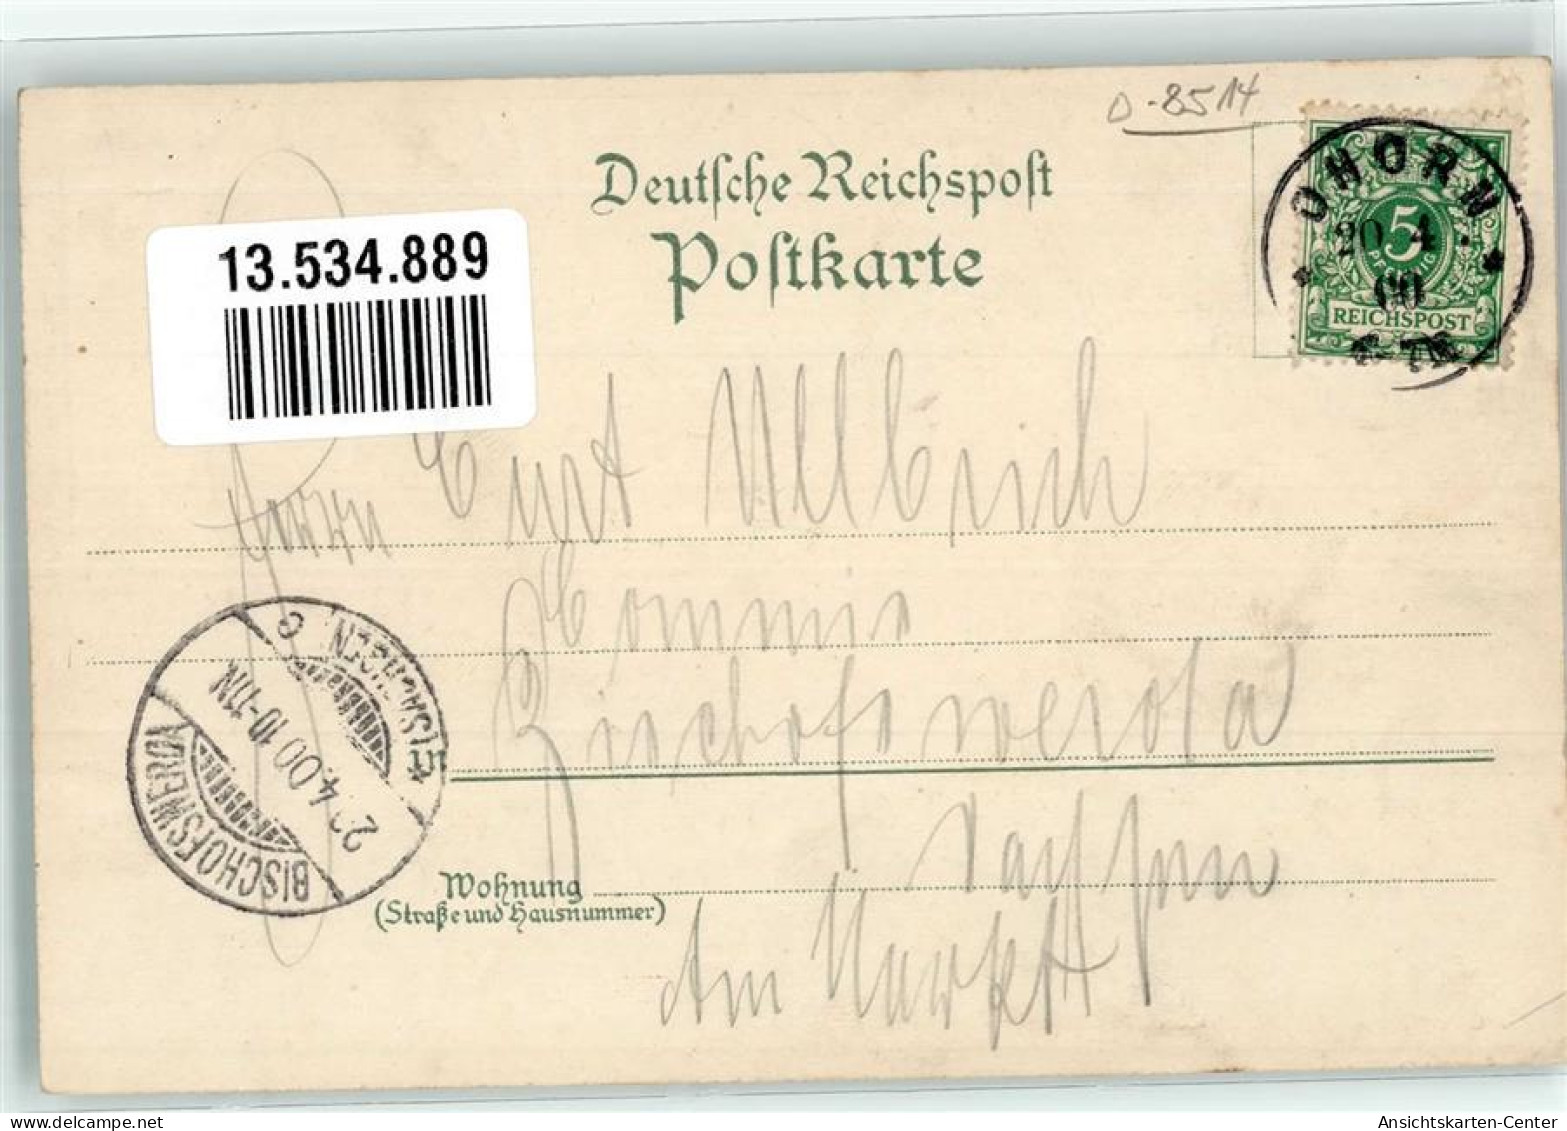 D-8514
Deutsche Reichspost
Postkarte
13.534.889
OHORN
20 4
00
5
PFENNIG
REICHSPOST
Herrn Curt Ullbrich
Commis
Bischofswerda
Sachsen
Am Markt
BISCHOFSWERDA
4.00 10-11N.
(SACHSEN) c
Wohnung
(Straße und Hausnummer)
delcampe.net
Ansichtskarten-Center